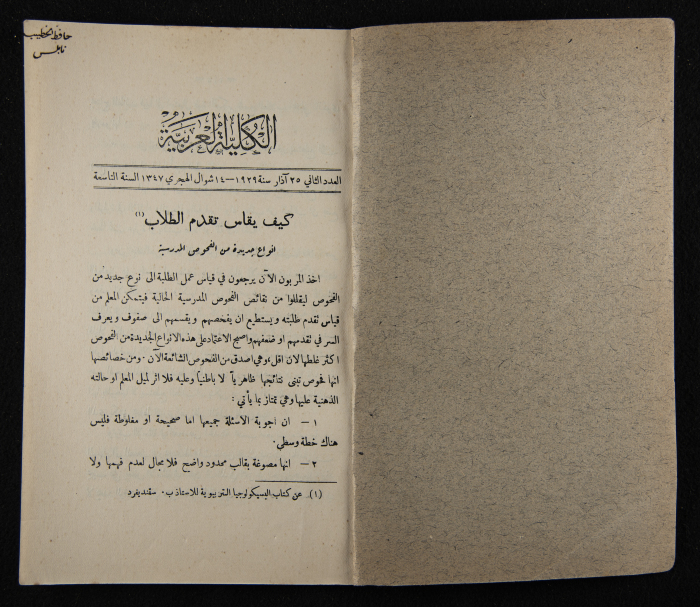 حافظ الخطيب
نابلس
الكلية العربية
العدد الثاني ٢٥ آذار سنة ١٩٢٩ — ١٤ شوال الهجري ١٣٤٧ السنة التاسعة
كيف يقاس تقدم الطلاب (١)
انواع جديدة من الفحوص المدرسية
اخذ المربون الآن يرجعون في قياس عمل الطلبة الى نوع جديد من
الفحوص ليقللوا من نقائص الفحوص المدرسية الحالية فيتمكن المعلم من
قياس تقدم طلبته ويستطيع ان يفحصهم ويقسمهم الى صفوف ويعرف
السر في تقدمهم او ضعفهم واصبح الاعتماد على هذه الانواع الجديدة من الفحوص
اكثر غلطها لان اقل، وهي اصدق من الفحوص الشائعة الآن. ومن خصائصها
انها فحوص تبنى نتائجها ظاهرياً لا باطنياً وعليه فلا اثر لميل المعلم او حالته
الذهنية عليها وهي تمتاز بما يأتي :
١ — ان اجوبة الاسئلة جميعها اما صحيحة او مغلوطة فليس
هناك خطة وسطى.
٢ — انها مصوغة بقالب محدود واضح فلا مجال لعدم فهمها ولا
(١). عن كتاب البسيكولوجيا التربيوية للاستاذ ب. سڤنديفرد